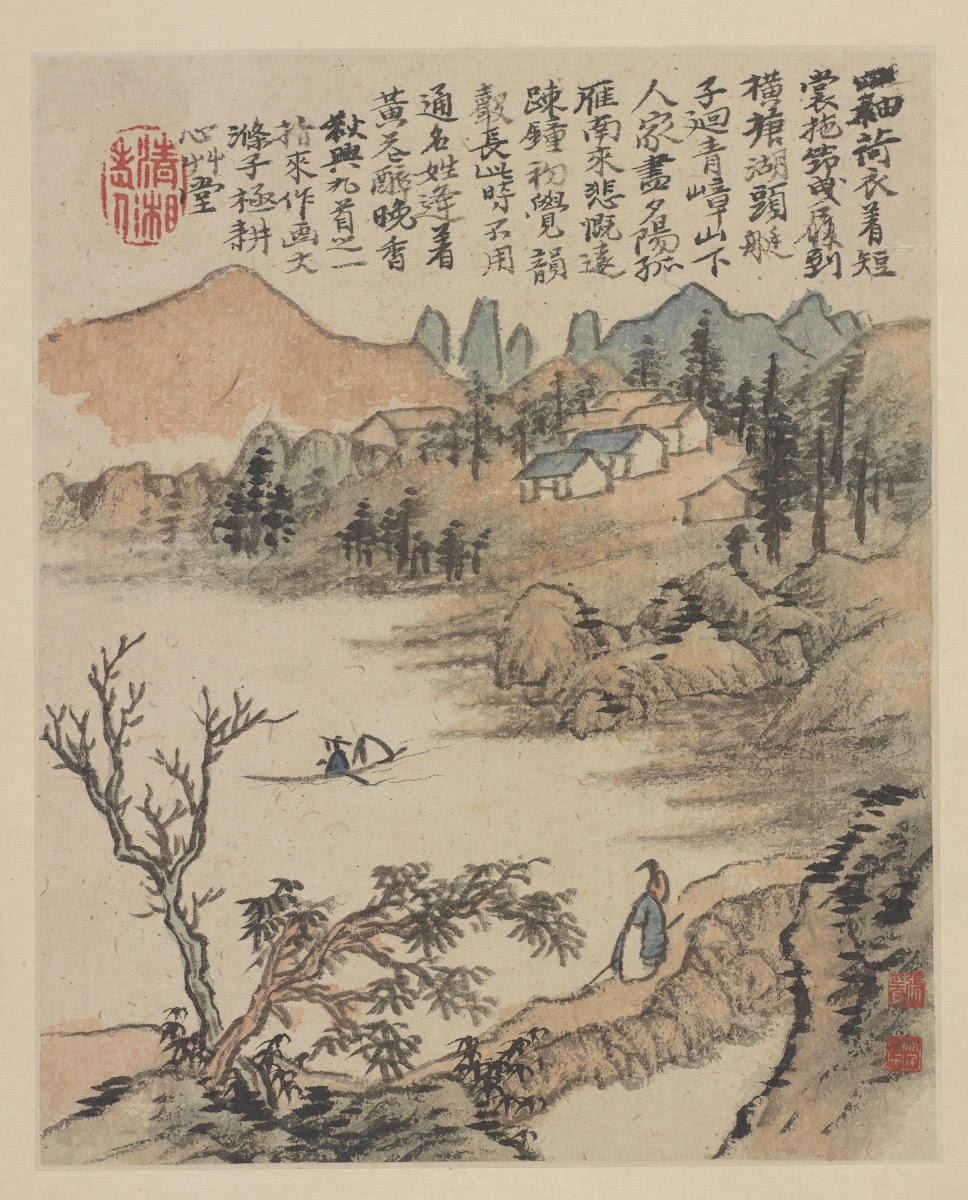 袖荷衣着短
裳拖筇曳屐到
橫塘湖頭艇
子迴青嶂山下
人家盡夕陽孤
雁南來悲慨遠
踈鍾初覺韻
聲長此時不用
通名姓逢着
黃花醉晚香
秋興九首之一
拈來作画大
滌子極耕
心艸堂
清湘
老人